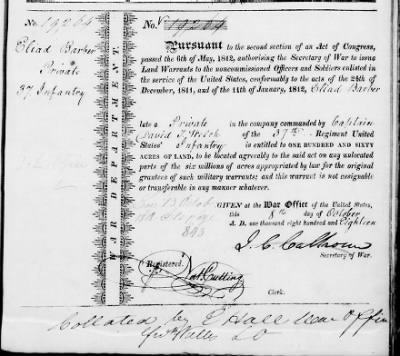 No. 19264
Eliad Barker
Private
37 Infantry
WAR DEPARTMENT.
No. 19264
Pursuant to the second section of an Act of Congress,
passed the 6th of May, 1812, authorising the Secretary of War to issue
Land Warrants to the noncommissioned Officers and Soldiers enlisted in
the service of the United States, conformably to the acts of the 24th of
December, 1811, and of the 11th of January, 1812, Eliad Barker
late a Private in the company commanded by Captain
David T. Welch of the 37th Regiment United
States' Infantry is entitled to ONE HUNDRED AND SIXTY
ACRES OF LAND, to be located agreeably to the said act on any unlocated
parts of the six millions of acres appropriated by law for the original
grantees of such military warrants; and this warrant is not assignable
or transferable in any manner whatever.
GIVEN at the War Office of the United States,
this 8th day of October
A. D. one thousand eight hundred and Eighteen
J. C. Calhoun
Secretary of War.
Registered,
Nat Cutting
Clerk.
Collated by E Hall War Office